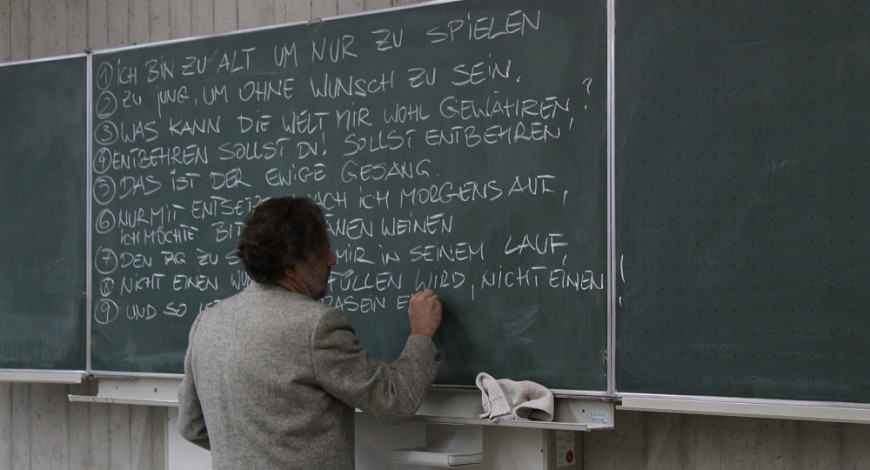 ① ICH BIN ZU ALT UM NUR ZU SPIELEN
② ZU JUNG, UM OHNE WUNSCH ZU SEIN.
③ WAS KANN DIE WELT MIR WOHL GEWÄHREN?
④ ENTBEHREN SOLLST DU! SOLLST ENTBEHREN!
⑤ DAS IST DER EWIGE GESANG.
⑥ NUR MIT ICH MORGENS AUF,
ICH MÖCHTE WEINEN
⑦ DEN TAG ZU MIR IN SEINEM LAUF,
⑧ NICHT EINEN WIRD, NICHT EINEN!
⑨ UND SO DASEIN